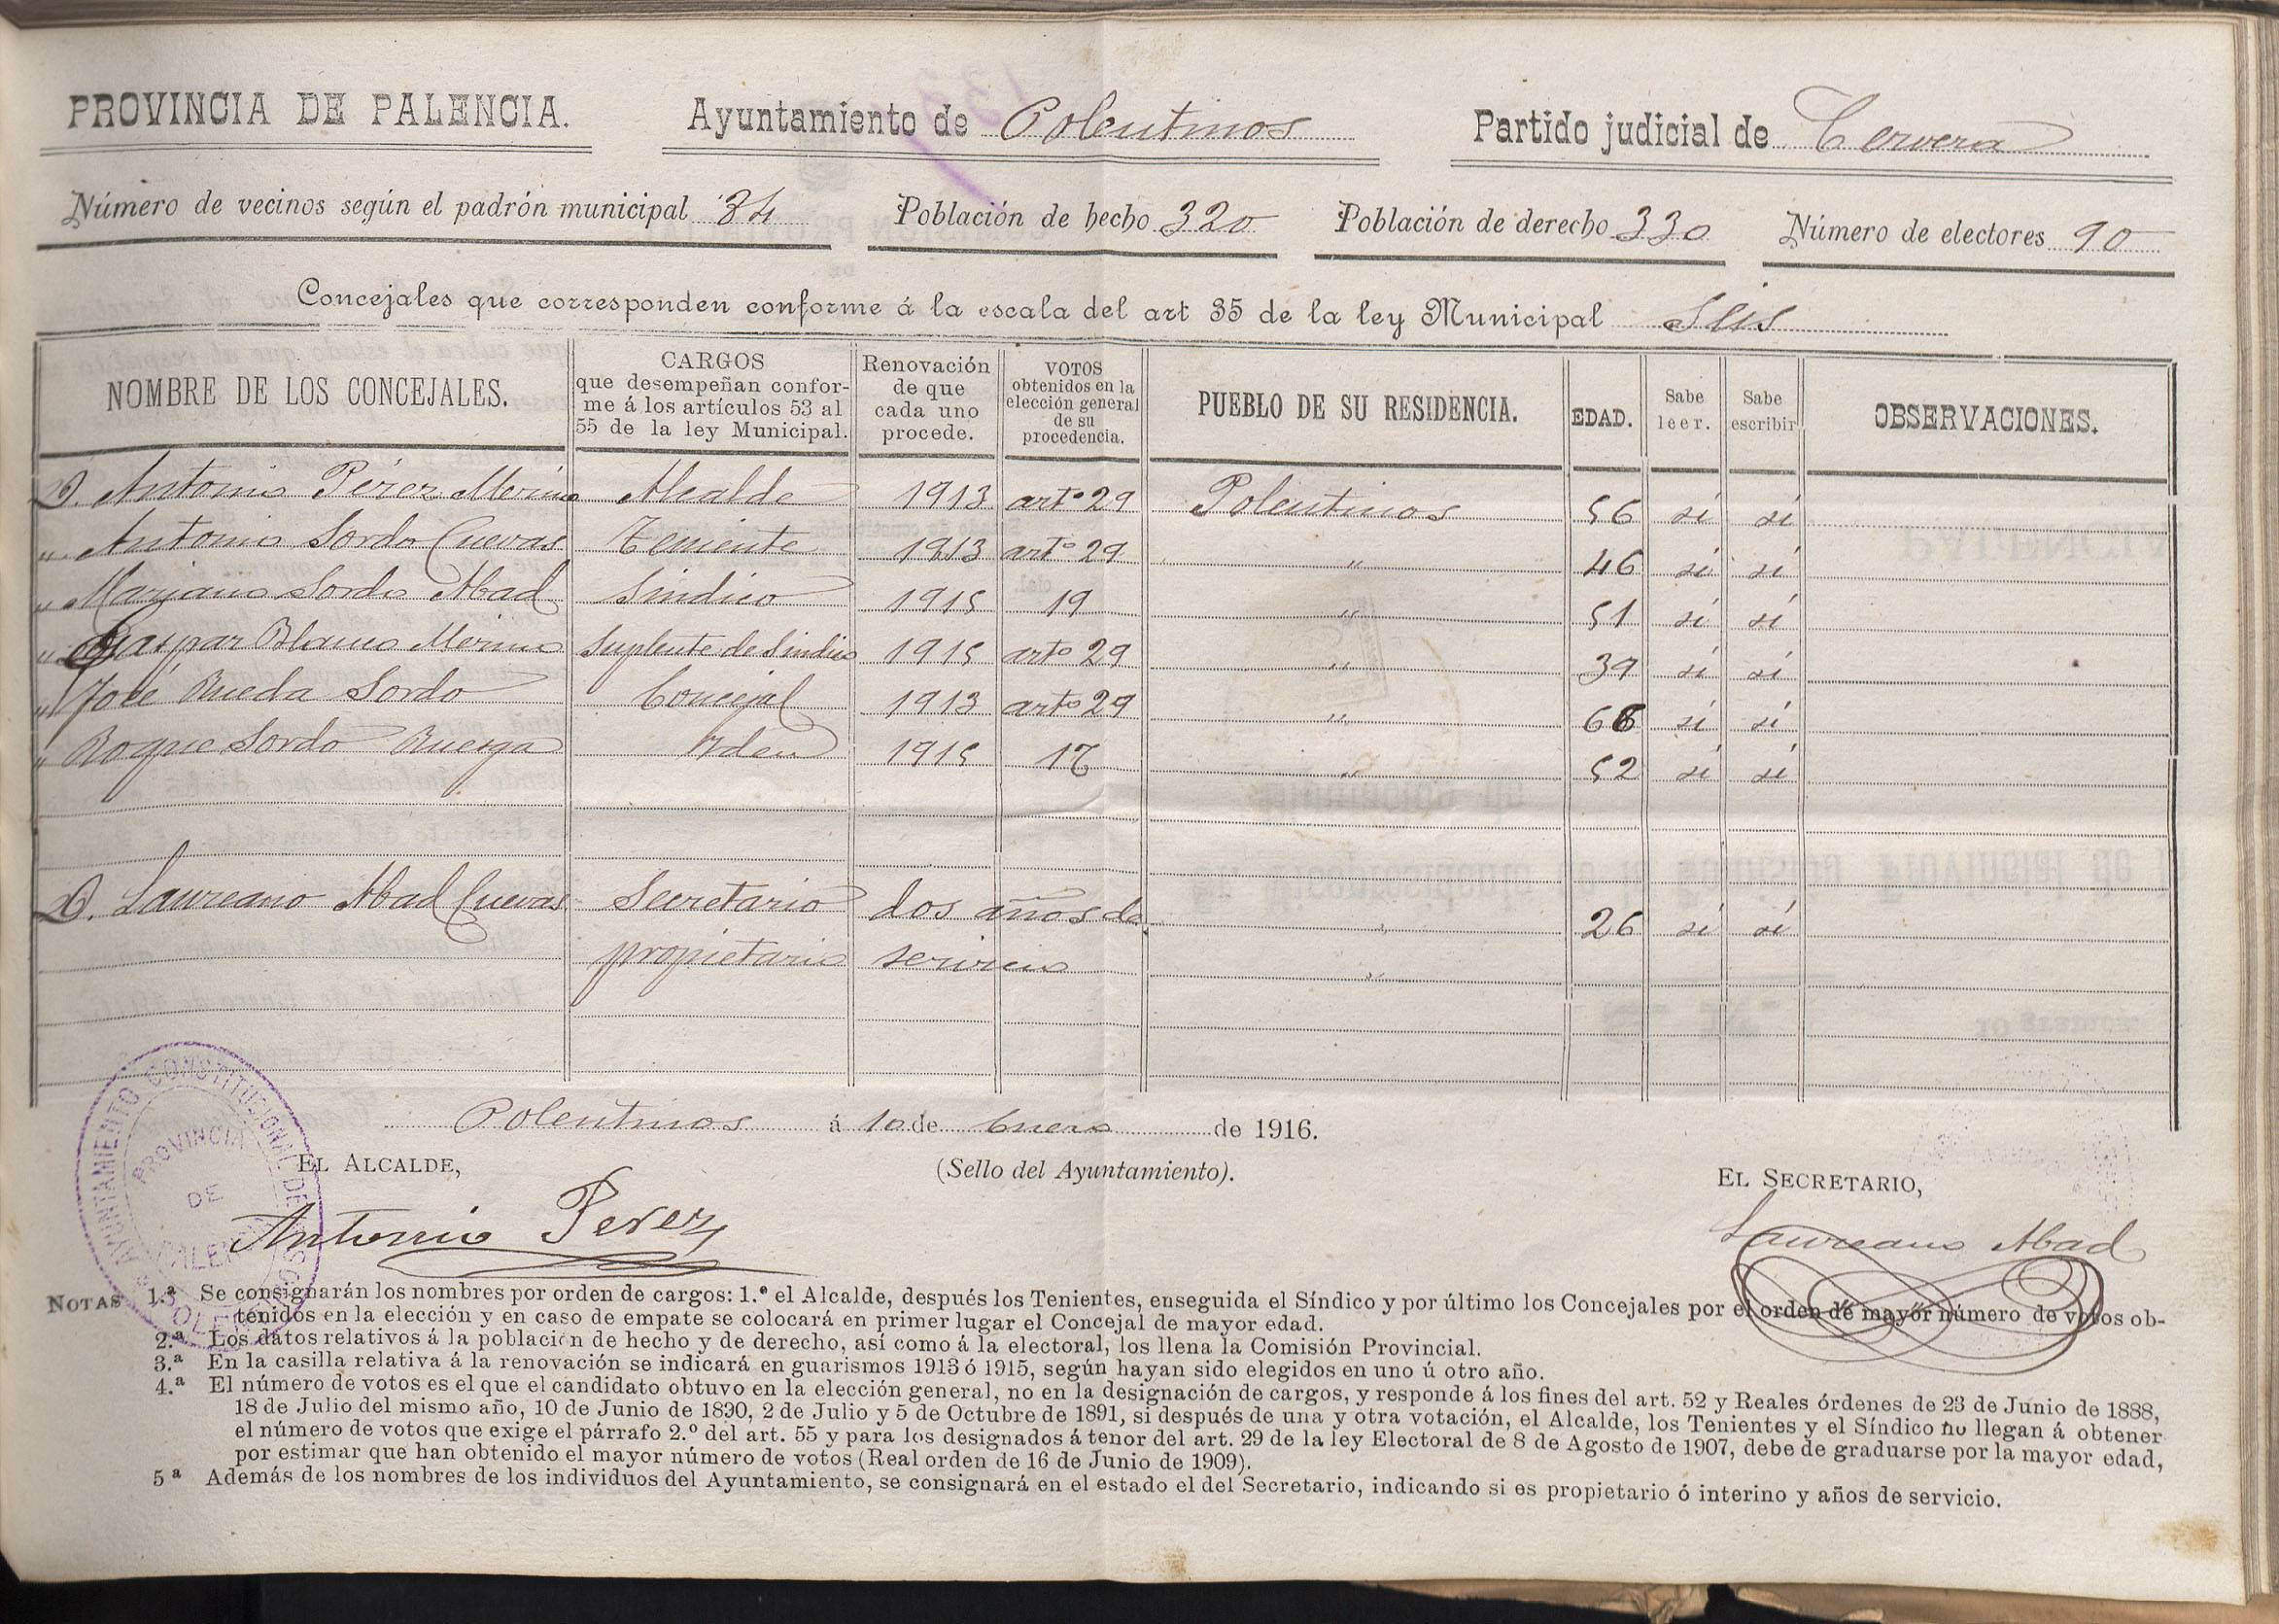 PROVINCIA DE PALENCIA. Ayuntamiento de Polentinos Partido judicial de Cervera
Número de vecinos según el padrón municipal 84 Población de hecho 320 Población de derecho 330 Número de electores 90
Concejales que corresponden conforme á la escala del art 35 de la ley Municipal Seis
NOMBRE DE LOS CONCEJALES. CARGOS que desempeñan conforme á los artículos 53 al 55 de la ley Municipal. Renovación de que cada uno procede. VOTOS obtenidos en la elección general de su procedencia. PUEBLO DE SU RESIDENCIA. EDAD. Sabe leer. Sabe escribir OBSERVACIONES.
D. Antonio Pérez Merino Alcalde 1913 arto 29 Polentinos 56 si si
" Antonio Sordo Cuevas Teniente 1913 arto 29 " 46 si si
" Mariano Sordo Abad Sindico 1915 19 " 51 si si
" Gaspar Blanco Merino Suplente de Sindico 1915 arto 29 " 39 si si
" José Rueda Sordo Concejal 1913 arto 29 " 68 si si
" Roque Sordo Ruesga Idem 1915 17 " 52 si si
D. Laureano Abad Cuevas Secretario dos años de " 26 si si
propietario servicio "
Polentinos á 10 de Enero de 1916.
EL ALCALDE, (Sello del Ayuntamiento). EL SECRETARIO,
Antonio Perez Laureano Abad
AYUNTAMIENTO CONSTITUCIONAL DE POLENTINOS
PROVINCIA DE PALENCIA
NOTAS 1.ª Se consignarán los nombres por orden de cargos: 1.º el Alcalde, después los Tenientes, enseguida el Síndico y por último los Concejales por el orden de mayor número de votos ob-
tenidos en la elección y en caso de empate se colocará en primer lugar el Concejal de mayor edad.
2.ª Los datos relativos á la población de hecho y de derecho, así como á la electoral, los llena la Comisión Provincial.
3.ª En la casilla relativa á la renovación se indicará en guarismos 1913 ó 1915, según hayan sido elegidos en uno ú otro año.
4.ª El número de votos es el que el candidato obtuvo en la elección general, no en la designación de cargos, y responde á los fines del art. 52 y Reales órdenes de 23 de Junio de 1888,
18 de Julio del mismo año, 10 de Junio de 1890, 2 de Julio y 5 de Octubre de 1891, si después de una y otra votación, el Alcalde, los Tenientes y el Síndico no llegan á obtener
el número de votos que exige el párrafo 2.º del art. 55 y para los designados á tenor del art. 29 de la ley Electoral de 8 de Agosto de 1907, debe de graduarse por la mayor edad,
por estimar que han obtenido el mayor número de votos (Real orden de 16 de Junio de 1909).
5ª Además de los nombres de los individuos del Ayuntamiento, se consignará en el estado el del Secretario, indicando si es propietario ó interino y años de servicio.